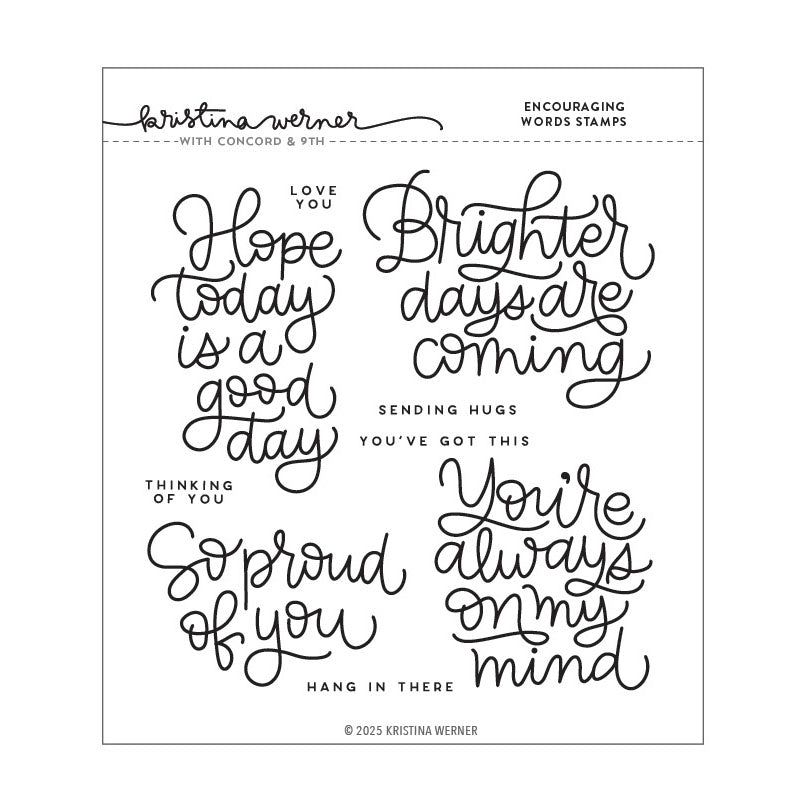 kristina werner
WITH CONCORD & 9TH
ENCOURAGING
WORDS STAMPS
LOVE
YOU
Hope
today
is a
good
day
Brighter
days are
coming
SENDING HUGS
YOU'VE GOT THIS
THINKING
OF YOU
So proud
of you
You're
always
on my
mind
HANG IN THERE
© 2025 KRISTINA WERNER